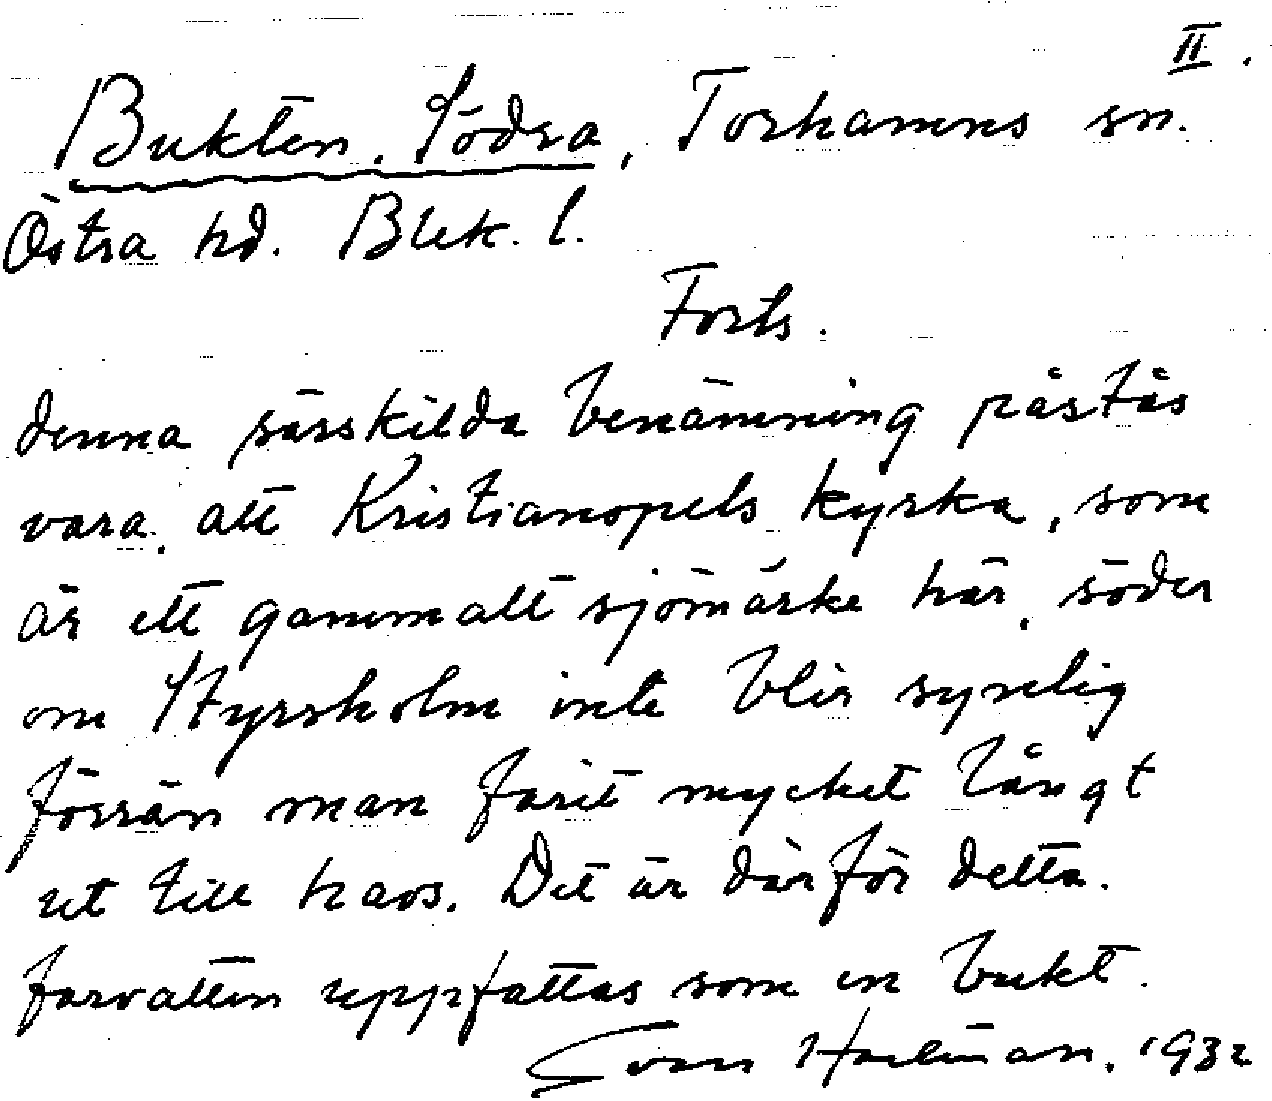 II.
Bukten, Södra, Torhamns sn.
Östra hd. Blek. l.
Forts.
denna särskilda benämning påstås
vara, att Kristianopels kyrka, som
är ett gammalt sjömärke här, söder
om Styrsholm inte blir synelig
förrän man farit mycket långt
ut till havs. Det är därför detta
farvatten uppfattas som en bukt.
1932